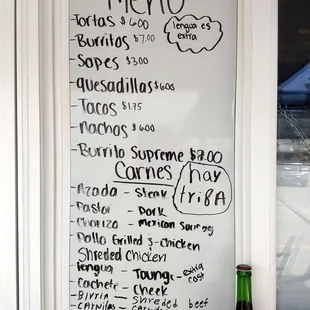 MENU
-Tortas $6.00
lengua es
extra
-Burritos $7.00
-Sopes $3.00
-quesadillas $6.00
-Tacos $1.75
-nachos $6.00
-Burrito Supreme $7.00
Carnes
hay
tripa
-Azada - Steak
-Pastor - Pork
-Chorizo - Mexican
-Pollo Grilled - Chicken
Shreded Chicken
-lengua - Toungue - extra
cost
-cachete - Cheek
-Birria - Shreded beef
-Carnitas -